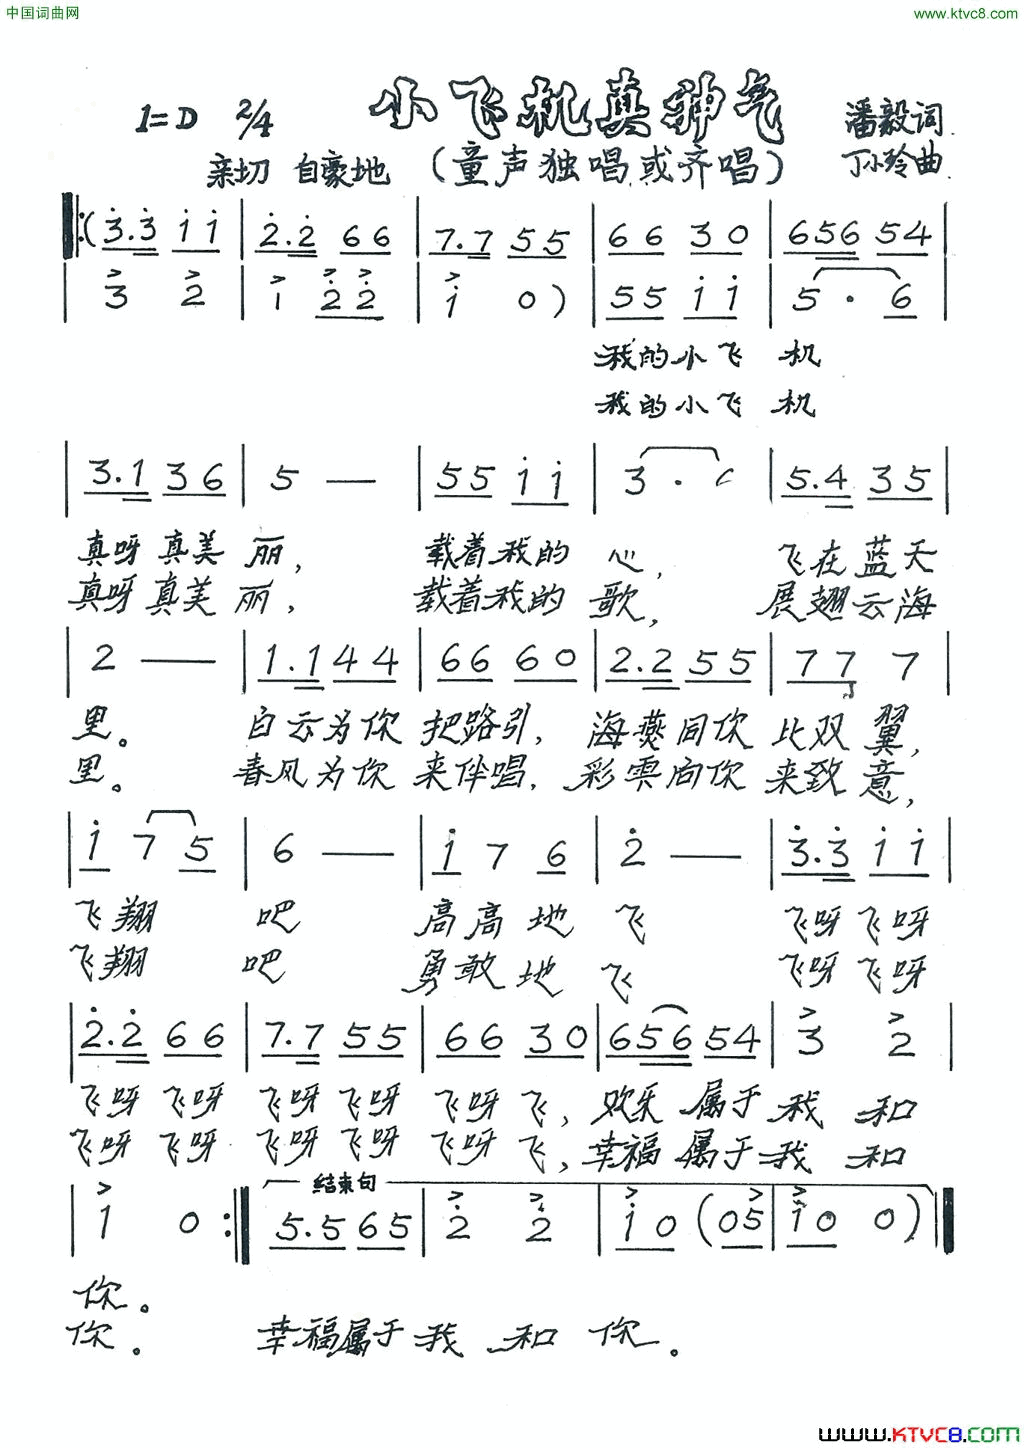 中国词曲网
www.ktvc8.com
小飞机真神气
1=D 2/4
潘毅词
亲切 自豪地 (童声独唱或齐唱)
丁小玲曲
(3.3 1 1 | 2.2 6 6 | 7.7 5 5 | 6 6 3 0 | 6 5 6 5 4 |
3 2 | 1 2 2 | 1 0) | 5 5 1 1 | 5 . 6 |
我的小飞 机
我的小飞 机
3.1 3 6 | 5 — | 5 5 1 1 | 3 . | 5.4 3 5 |
真呀真美 丽, 载着我的 心, 飞在蓝天
真呀真美 丽, 载着我的 歌, 展翅云海
2 — | 1.1 4 4 | 6 6 6 0 | 2.2 5 5 | 7 7 7 |
里。 白云为你 把路引, 海燕同你 比双翼,
里。 春风为你 来伴唱, 彩雲向你 来致意,
1 7 5 | 6 — | 1 7 6 | 2 — | 3.3 1 1 |
飞翔 吧 高高地 飞 飞呀飞呀
飞翔 吧 勇敢地 飞 飞呀飞呀
2.2 6 6 | 7.7 5 5 | 6 6 3 0 | 6 5 6 5 4 | 3 2 |
飞呀飞呀 飞呀飞呀 飞呀飞, 欢乐属于我 和
飞呀飞呀 飞呀飞呀 飞呀飞, 幸福属于我 和
结束句
1 0 :| 5.5 6 5 | 2 2 | 1 0 (0 5 | 1 0 0) |
你。
你。 幸福属于我 和 你。
www.KTVC8.com